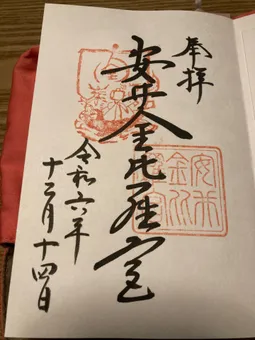 奉拝
安井金比羅宮
令和六年
十二月十四日